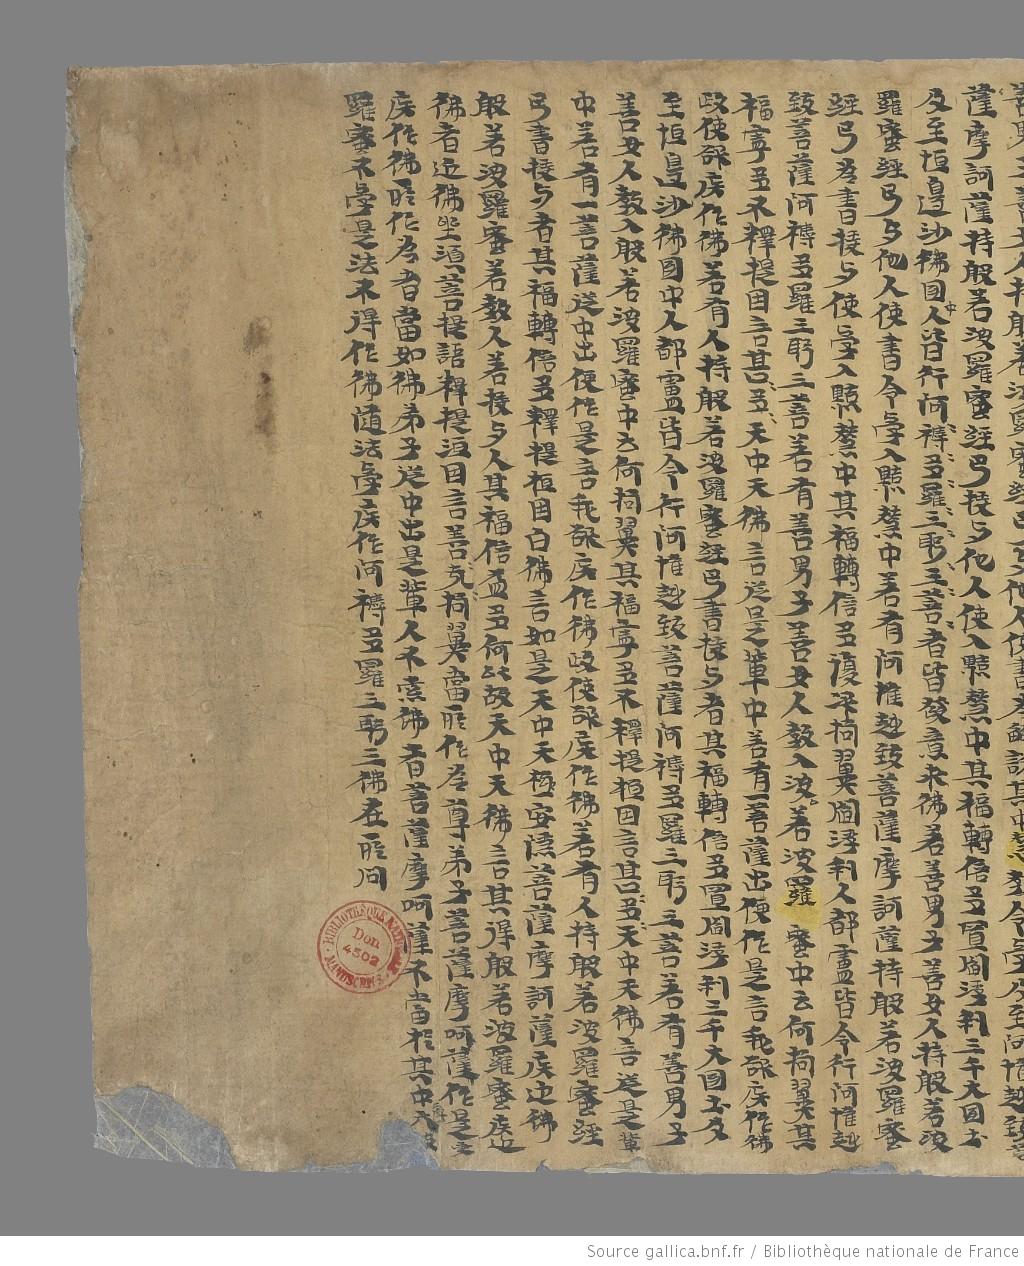 薩摩訶薩持般若波羅蜜經已授与他人使入黠慧中其福轉倍多置閻浮利三千大国土
及至恒邊沙佛国中人皆行阿耨多羅三耶三菩者皆發意求佛若善男子善女人持般若波
羅蜜經已与他人使書令學入黠慧中若有阿惟越致菩薩摩訶薩持般若波羅蜜
經已為書授与使學入黠慧中其福轉倍多復次拘翼閻浮利人都盧皆令行阿惟越
致菩薩阿耨多羅三耶三菩若有善男子善女人教入波若波羅蜜中云何拘翼其
福寧多不釋提因言甚〻多〻天中天佛言從是輩中若有一菩薩出便作是言我欲疾作佛
政使欲疾作佛若有人持般若波羅蜜經已書授与者其福轉倍多置閻浮利三千大国土及
至恒邊沙佛国中人都盧皆令行阿惟越致菩薩阿耨多羅三耶三菩若有善男子
善女人教入般若波羅蜜中云何拘翼其福寧多不釋提桓因言甚〻多〻天中天佛言從是輩
中若有一菩薩從中出便作是言我欲疾作佛政使欲疾作佛若有人持般若波羅蜜經
已書授与者其福轉倍多釋提桓因白佛言如是天中天極安隱菩薩摩訶薩疾近佛
般若波羅蜜若教人若授与人其福倍益多何以故天中天佛言其得般若波羅蜜疾近
佛者近佛坐須菩提語釋提洹因言善哉拘翼當所作為尊弟子菩薩摩訶薩作是
疾作佛所作為者當如佛弟子從中出是輩人不索佛者菩薩摩訶薩不當於其中六波
羅蜜不學是法不得作佛隨法學疾作阿耨多羅三耶三佛在所問
BIBLIOTHÈQUE NATIONALE MANUSCRITS
Don
4502
Source gallica.bnf.fr / Bibliothèque nationale de France